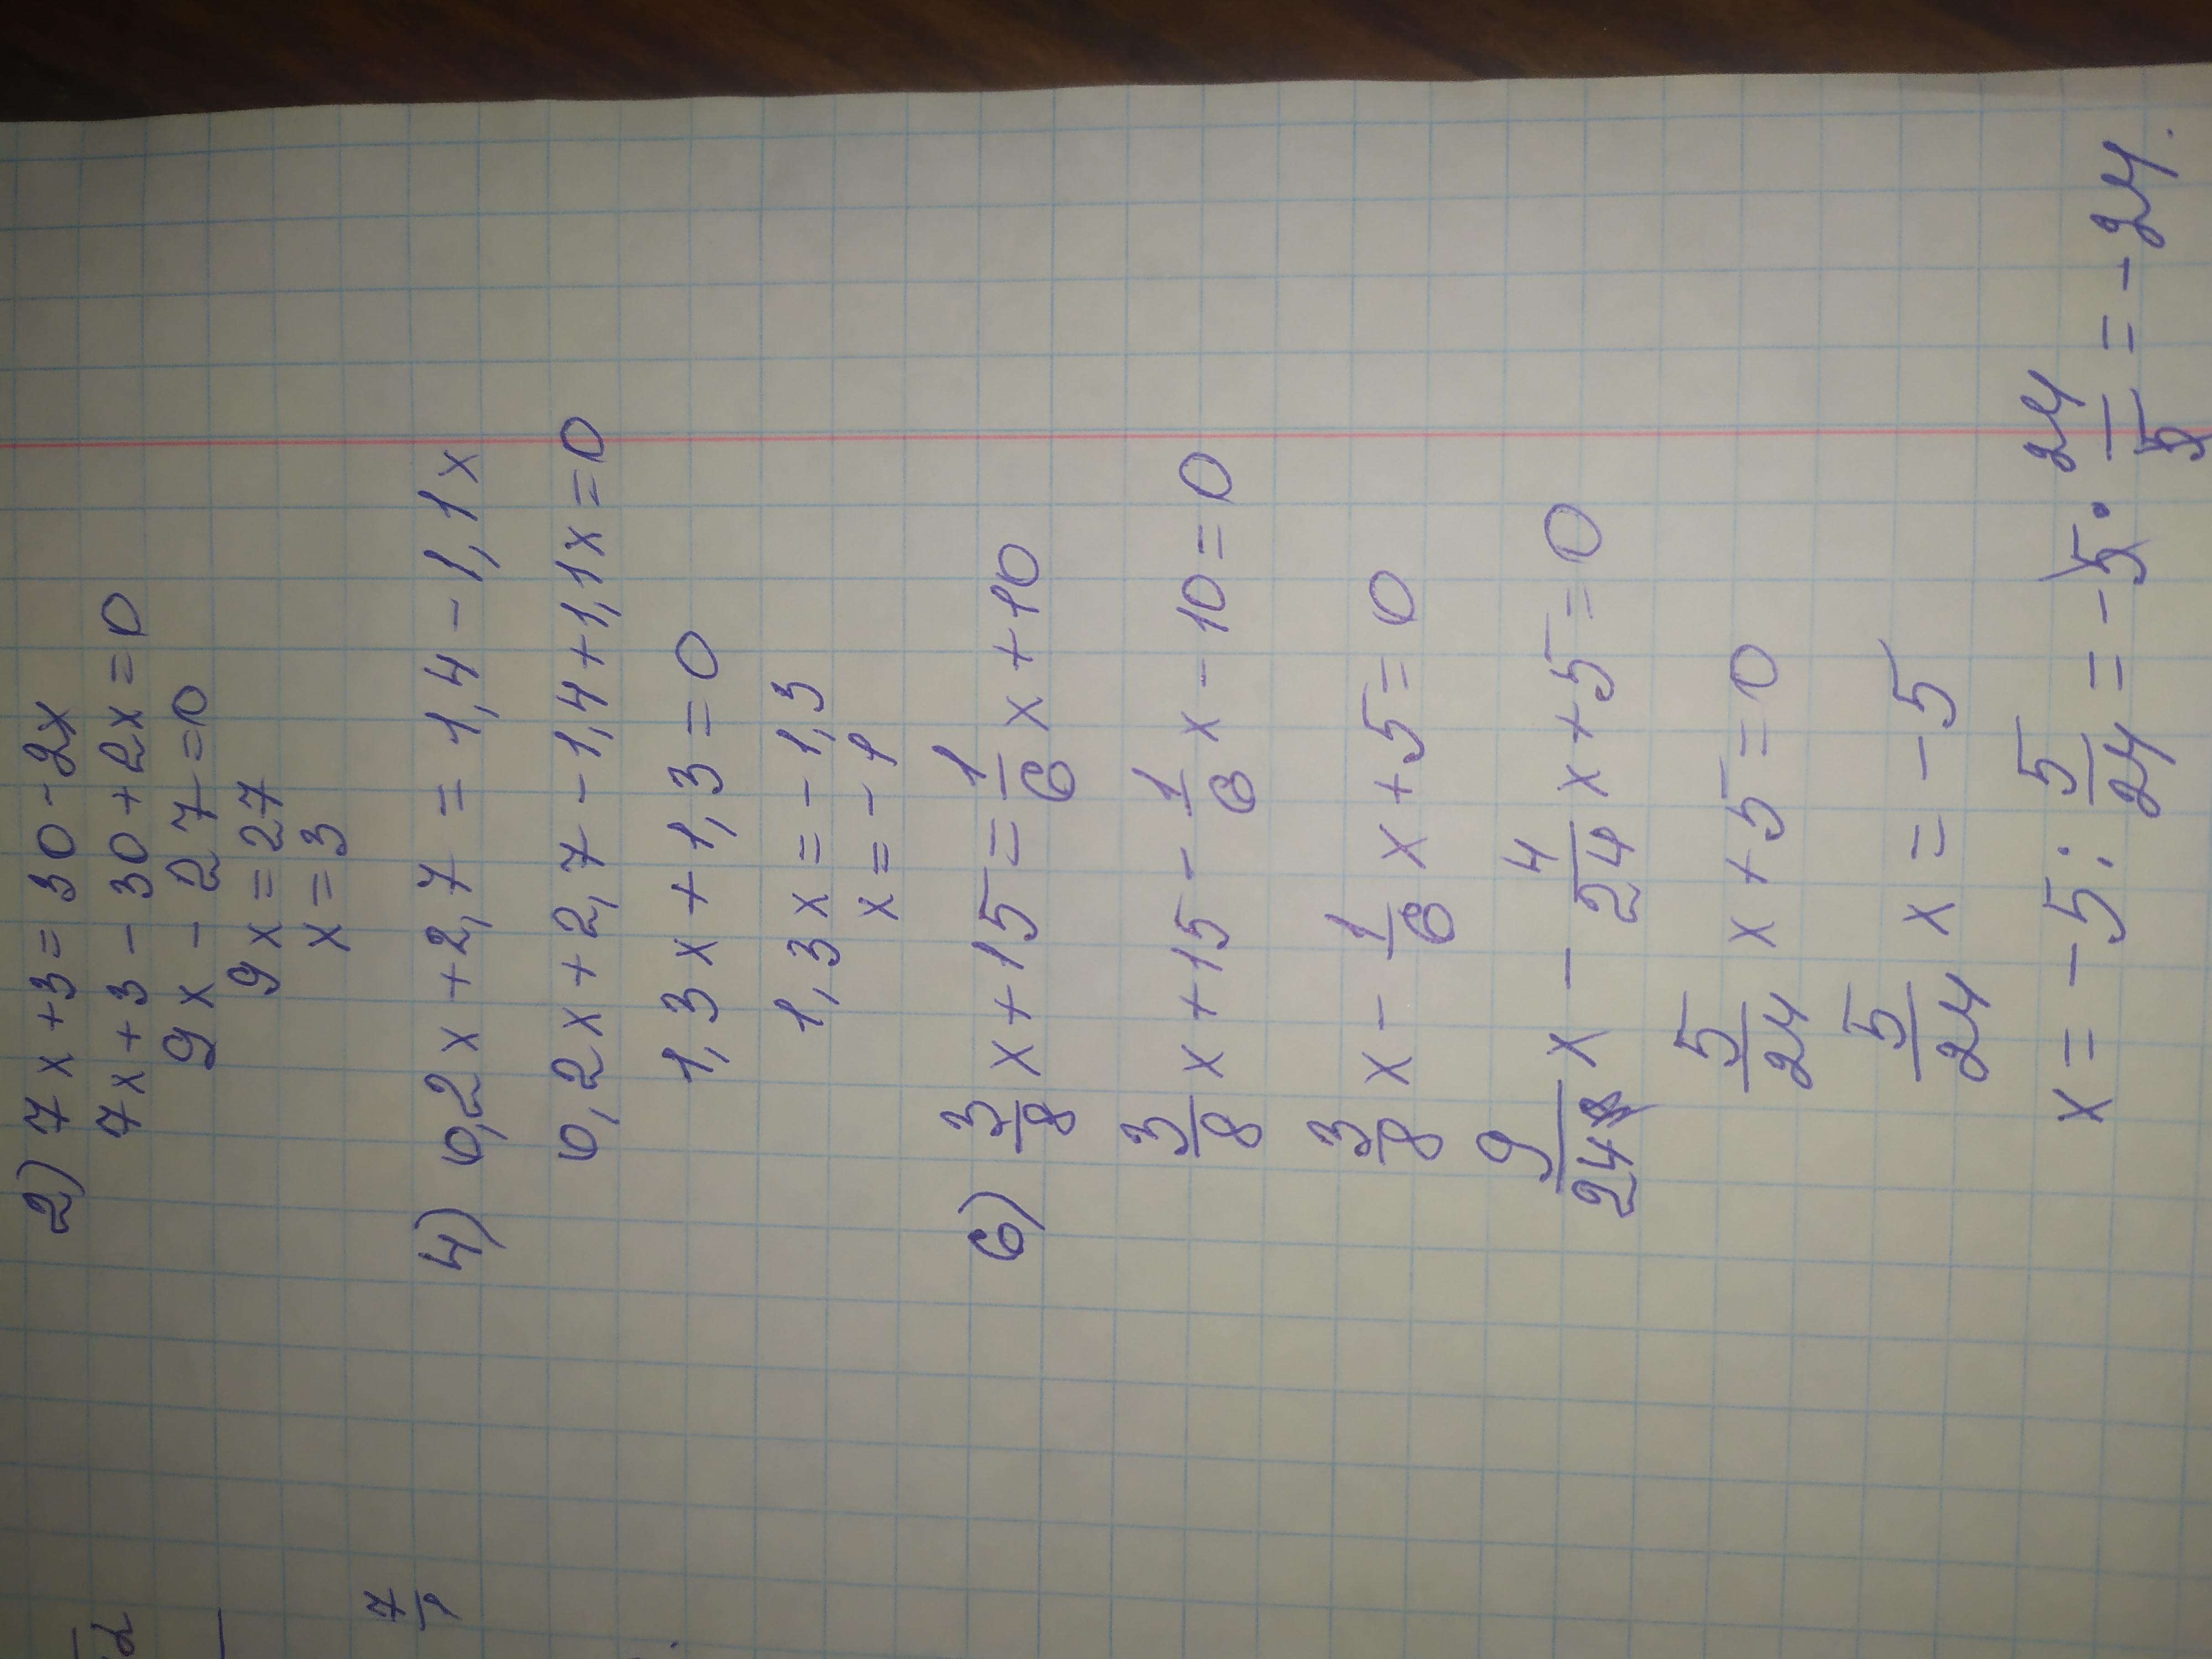 2) 7x+3=30-2x
7x+3-30+2x=0
9x-27=0
9x=27
x=3
4) 0,2x+2,7=1,4-1,1x
0,2x+2,7-1,4+1,1x=0
1,3x+1,3=0
1,3x=-1,3
x=-1
6) 3/8 x+15=1/6 x+10
3/8 x+15-1/6 x-10=0
3/8 x-1/6 x+5=0
9/24 x-4/24 x+5=0
5/24 x+5=0
5/24 x=-5
x=-5:5/24=-5·24/5=-24.
7